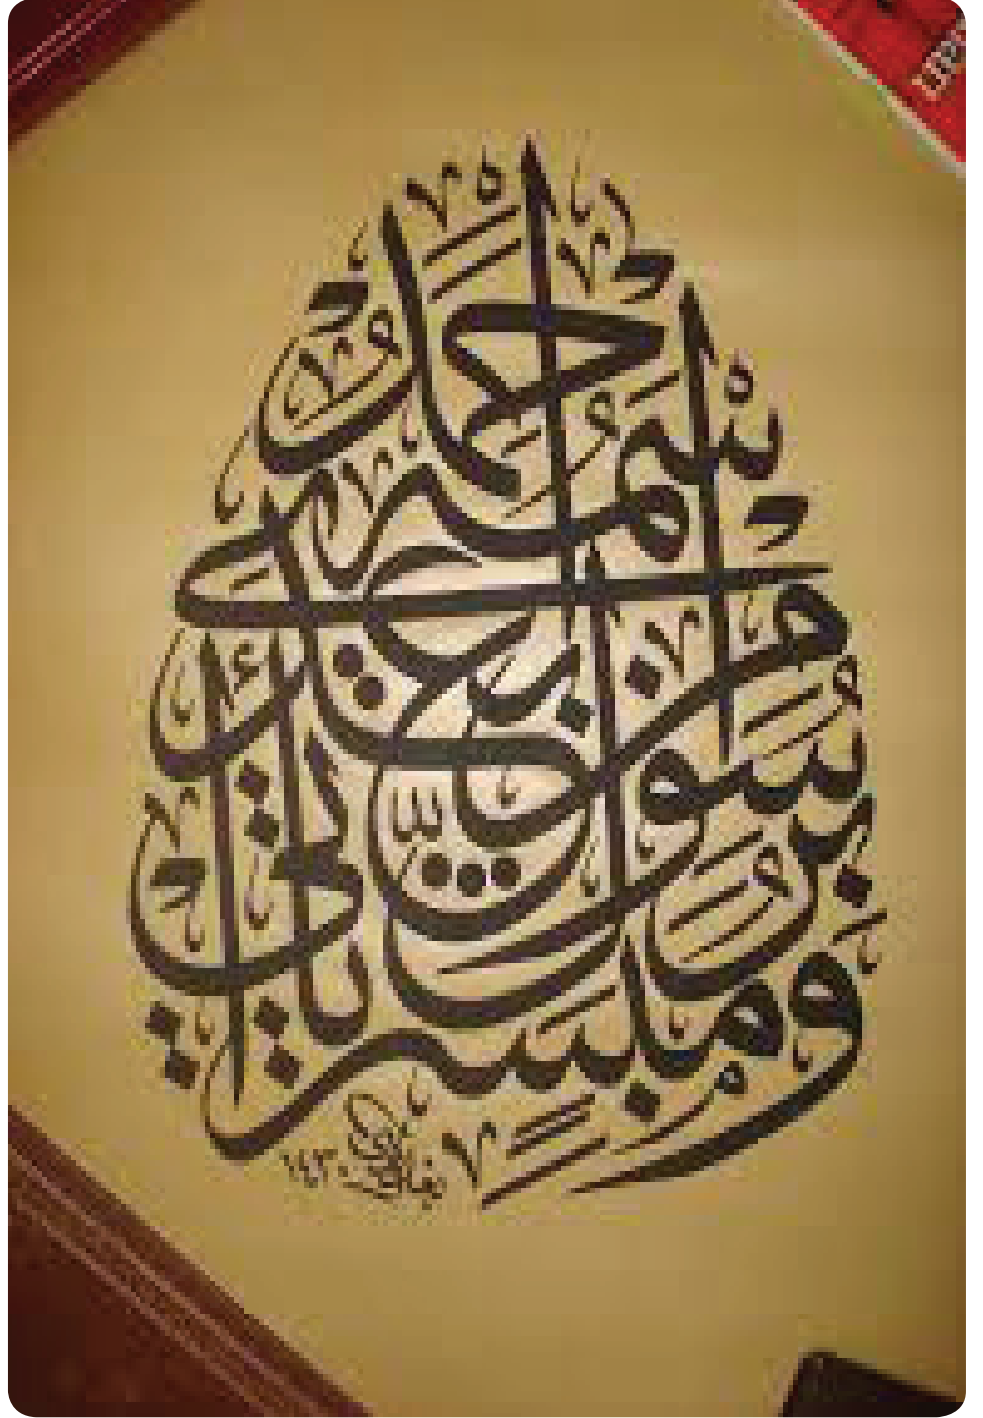 وَمُبَشِّرًا بِرَسُولٍ يَأْتِي مِنْ بَعْدِي اسْمُهُ أَحْمَدُ
١٤٣٠